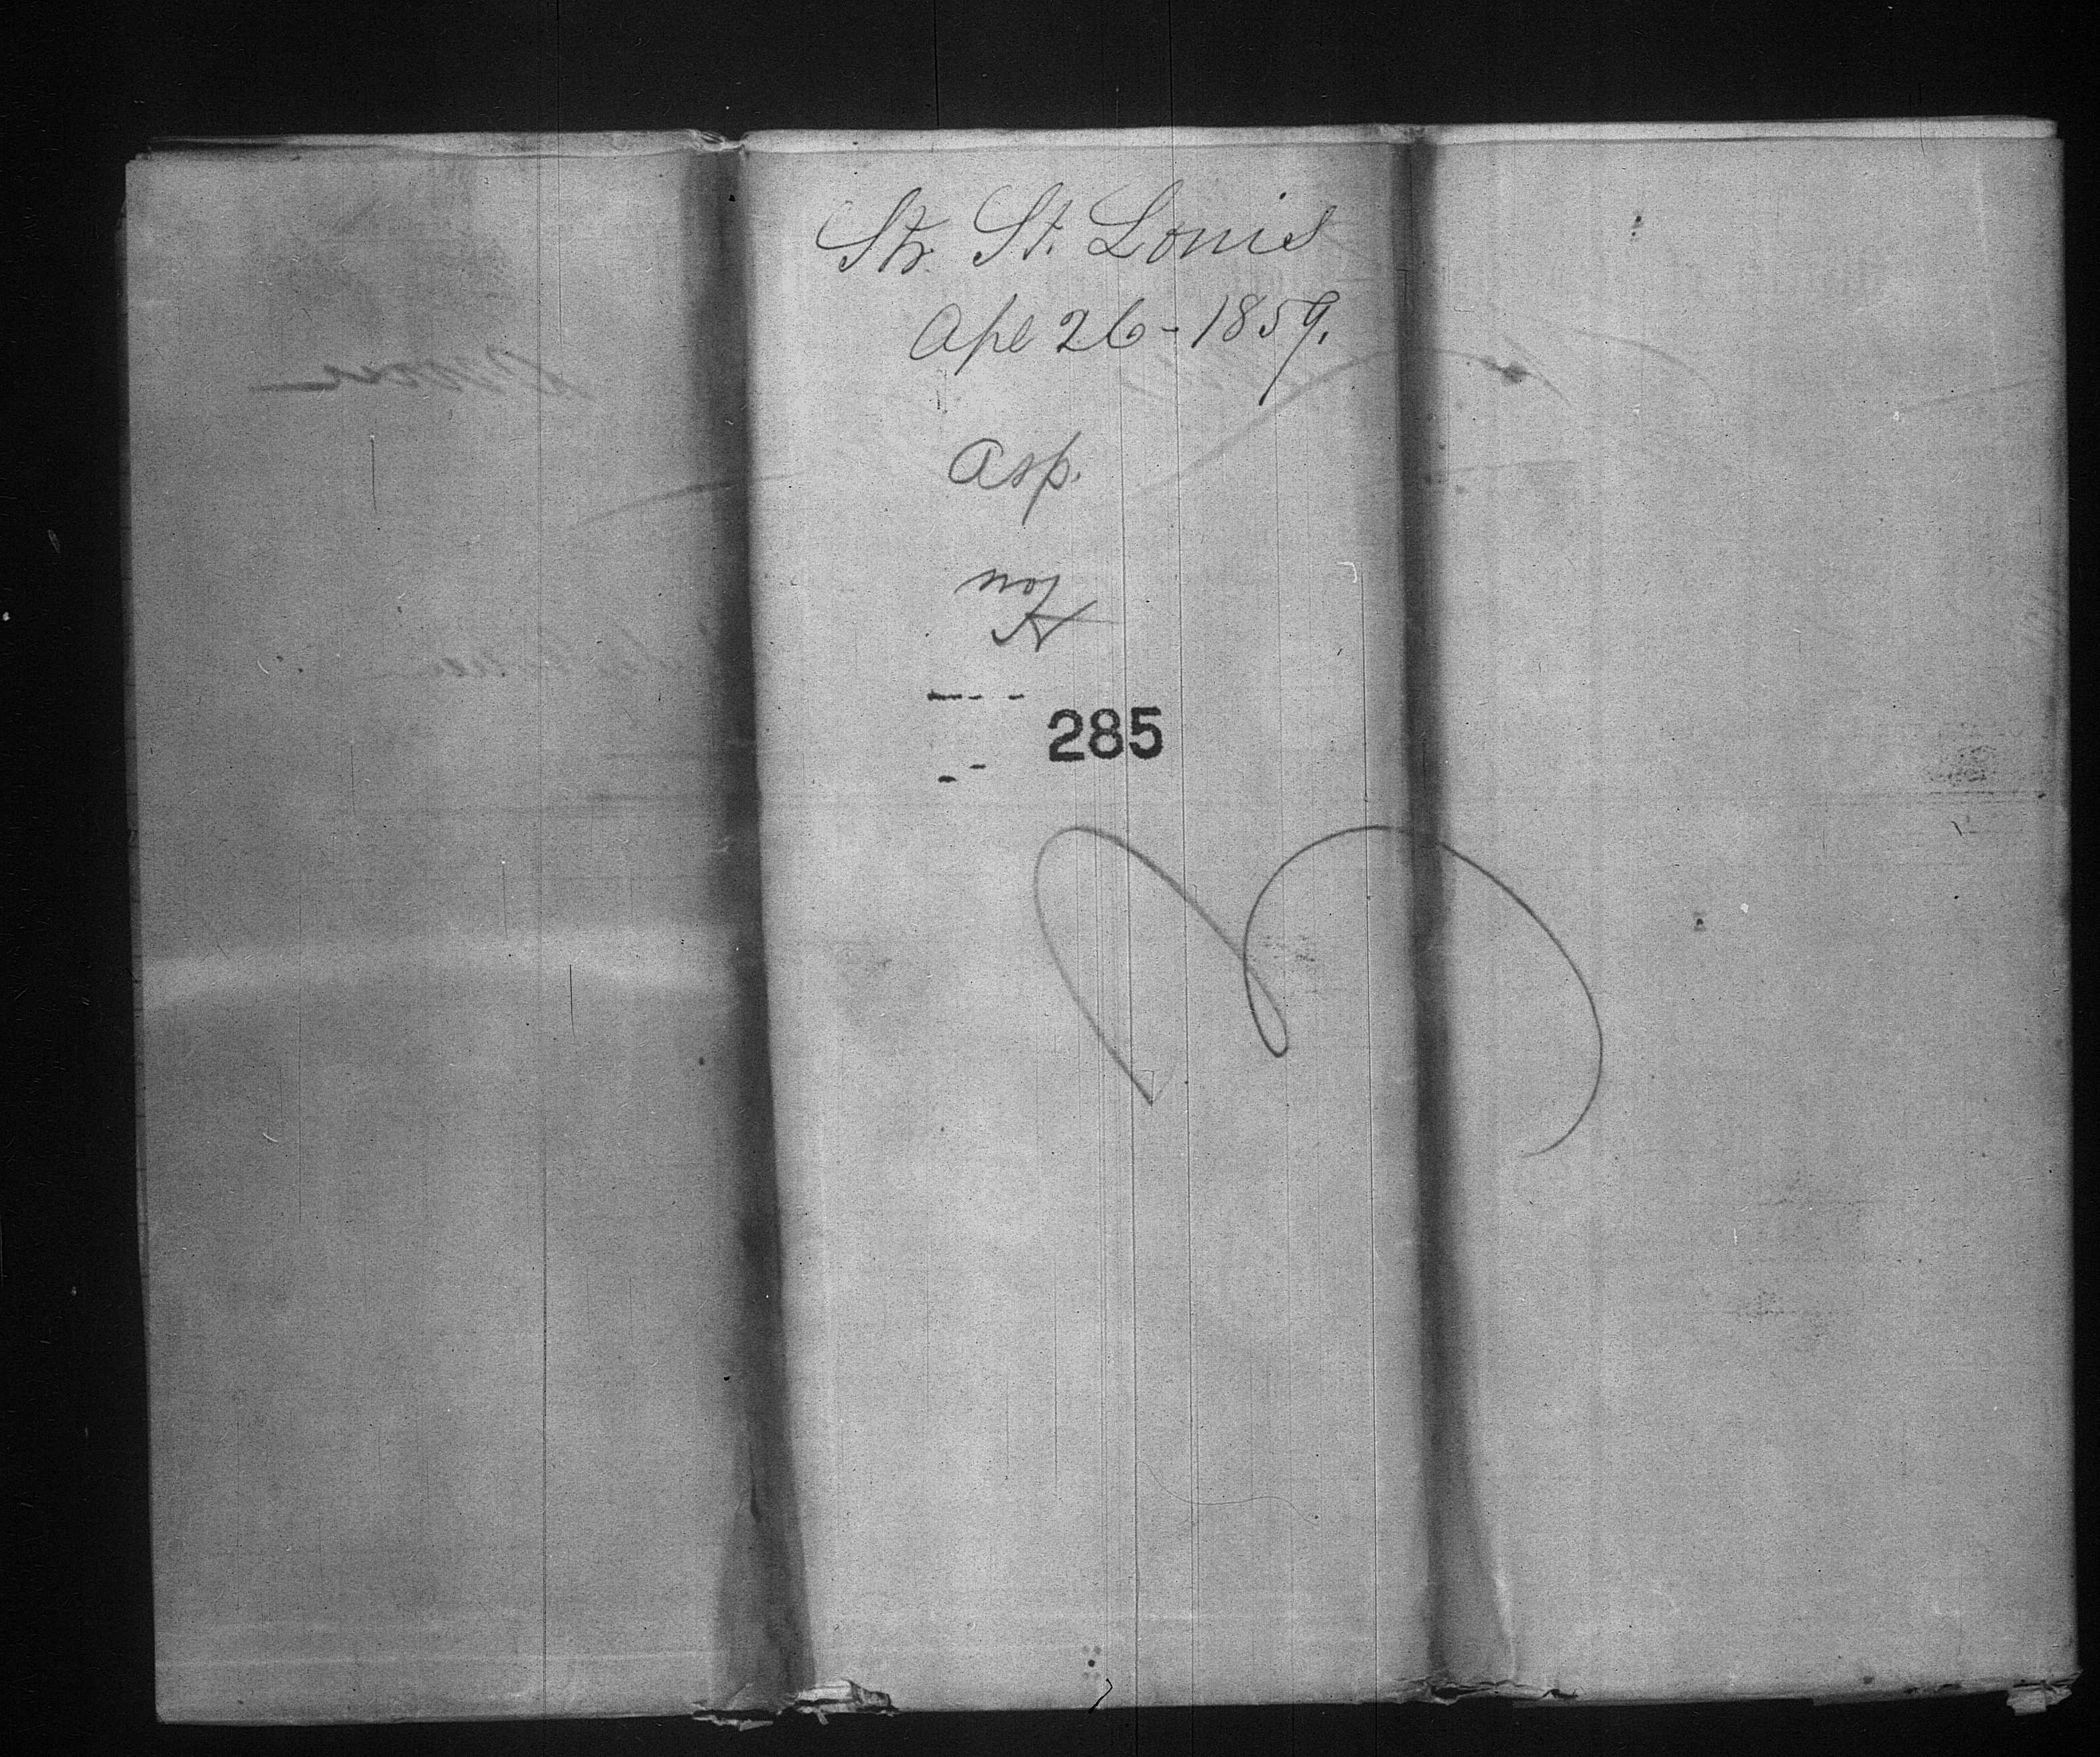 Str. St. Louis
Apl 26 - 1859.
Asp.
285